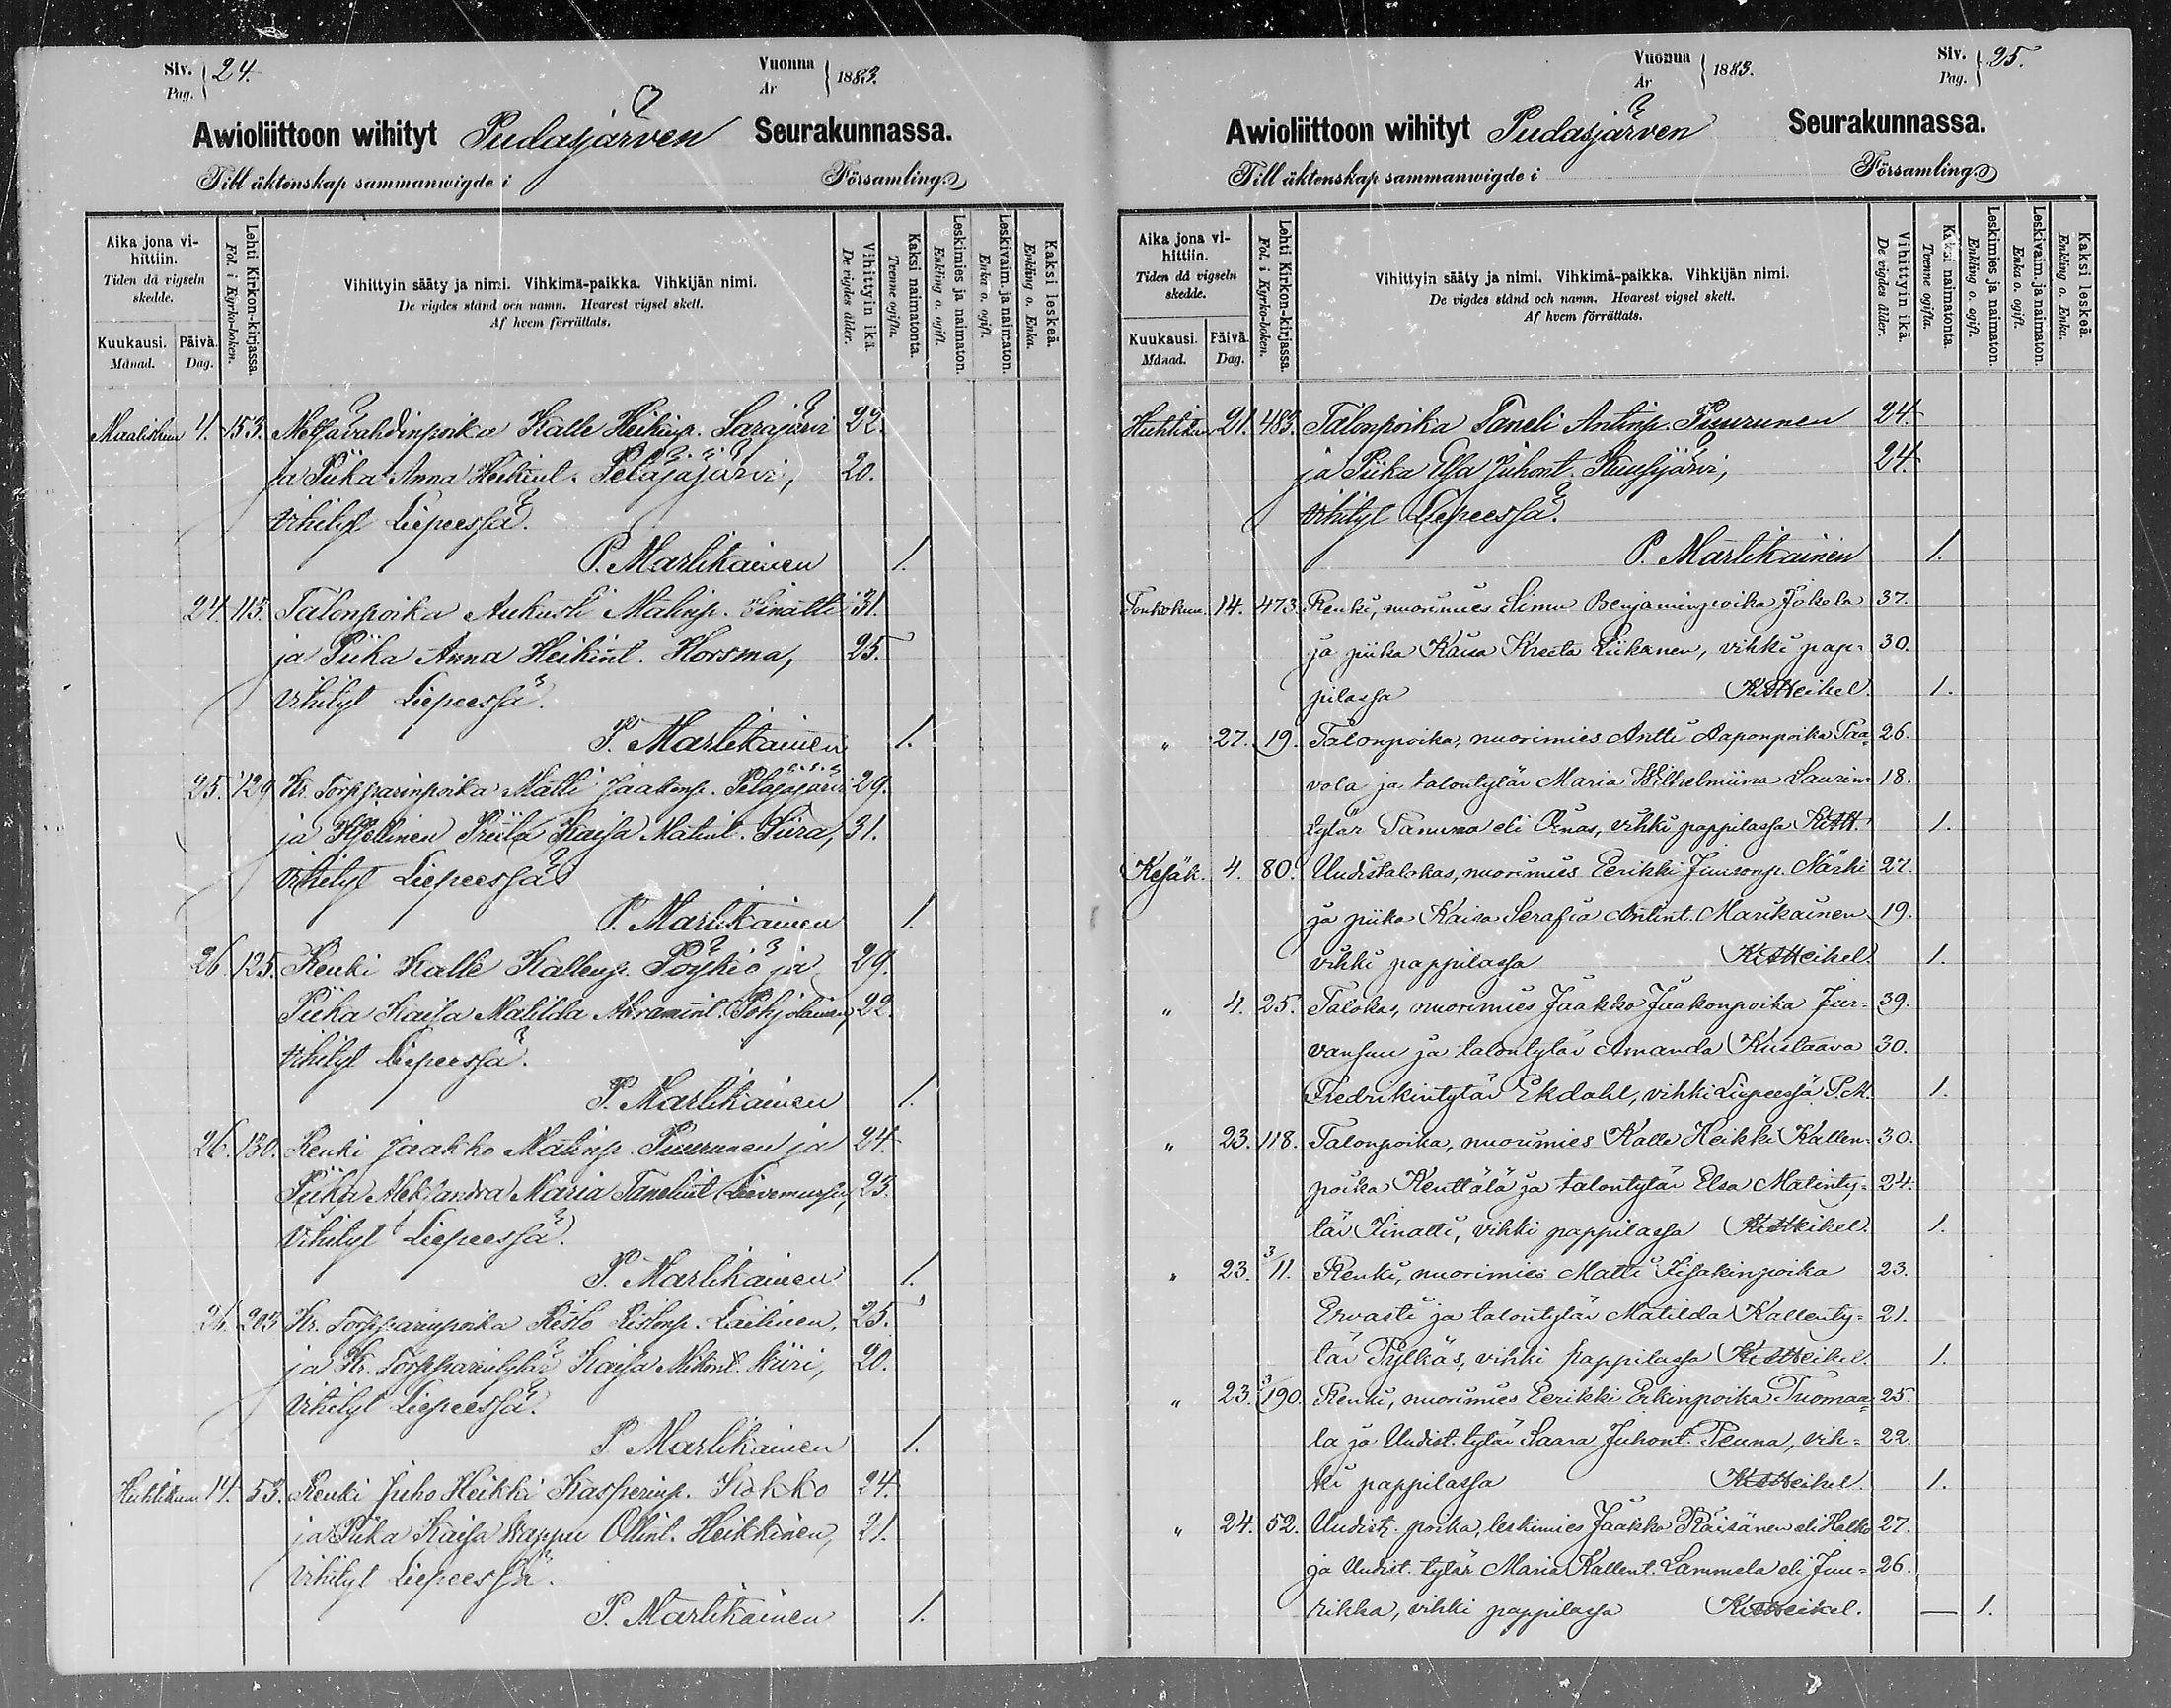 Siv. 24.
Pag.
Vuonna 1883.
År
Awioliittoon wihityt Pudasjärven Seurakunnassa.
Till äktenskap sammanwigde i Församling.
Aika jona vihittiin.
Tiden då vigseln skedde.
Kuukausi. Månad.
Päivä. Dag.
Lehti Kirkon-kirjassa.
Fol. i Kyrko-boken.
Vihittyin sääty ja nimi. Vihkimä-paikka. Vihkijän nimi.
De vigdes stånd och namn. Hvarest vigsel skett.
Af hvem förrättats.
Vihittyin ikä.
De vigdes ålder.
Kaksi naimatonta.
Tvenne ogifta.
Leskimies ja naimaton.
Enkling o. ogift.
Leskivaim. ja naimaton.
Enka o. ogift.
Kaksi leskeä.
Enkling o. Enka.
Maalisk 4. 153. Metsävahdinpoika Kalle Heikinp. Sarajärvi 22.
ja Piika Anna Heikint. Petäjäjärvi, 20.
vihityt Liepeessä.
P. Martikainen 1.
24. 113. Talonpoika Aukusti Matinp. Iinatti 31.
ja Piika Anna Heikint. Horsma, 25.
vihityt Liepeessä.
P. Martikainen 1.
25. 129 Kr. Torpparinpoika Matti Jaakonp. Petäjäjärvi 29.
ja Kaisa Matint. 31.
vihityt Liepeessä
P. Martikainen 1.
26. 125. Renki Kalle Kallenp. Pöykiö ja 29.
Piika Kaisa Matilda Abramint. Pohjolainen, 22.
vihityt Liepeessä.
P. Martikainen 1.
26. 130. Renki Jaakko Matinp. Puurunen ja 24.
Piika Aleksandra Maria Tanelint. 23.
vihityt Liepeessä.
P. Martikainen 1.
26. 203 Kr. Torpparinpoika Risto Ristonp. Laitinen, 25.
ja Kr. Torpparintytär Kaisa Niiri, 20.
vihityt Liepeessä.
P. Martikainen 1.
Huhtikuu 14. 53. Renki Juho Heikki Kasperinp. Kokko 24.
ja Piika Kaisa Wappu Ollint. Heikkinen, 21.
vihityt Liepeessä.
P. Martikainen 1.
Vuonna 1883.
År
Siv. 25.
Pag.
Awioliittoon wihityt Pudasjärven Seurakunnassa.
Till äktenskap sammanwigde i Församling.
Aika jona vihittiin.
Tiden då vigseln skedde.
Kuukausi. Månad.
Päivä. Dag.
Lehti Kirkon-kirjassa.
Fol. i Kyrko-boken.
Vihittyin sääty ja nimi. Vihkimä-paikka. Vihkijän nimi.
De vigdes stånd och namn. Hvarest vigsel skett.
Af hvem förrättats.
Vihittyin ikä.
De vigdes ålder.
Kaksi naimatonta.
Tvenne ogifta.
Leskimies ja naimaton.
Enkling o. ogift.
Leskivaim. ja naimaton.
Enka o. ogift.
Kaksi leskeä.
Enkling o. Enka.
Huhtikuu 21. 483. Talonpoika Taneli Antinp. Puurunen 24.
ja Piika Elsa Juhont. Kuusijärvi, 24.
vihityt Liepeessä.
P. Martikainen 1.
Toukokuu 14. 473 Renki, nuorimies Simu Benjaminpoika Jokela 37.
ja piika Kaisa Kreeta Liikanen, vihki pap- 30.
pilassa Heikel. 1.
" 27. 19. Talonpoika, nuorimies Antti Aaponpoika Paa- 26.
vola ja talontytär Maria Wilhelmiina Laurin- 18.
tytär Tanuma eli Ainas, vihki pappilassa 1.
Kesäk. 4. 80. Uudistalokas, nuorimies Eerikki Juusonp. Närhi 27.
ja piika Kaisa Serafia Antint. Marikainen 19.
vihki pappilassa Heikel. 1.
" 4. 25. Talokas, nuorimies Jaakko Jaakonpoika Jur- 39.
vansuu ja talontytär Amanda Kustaava 30.
Fredrikintytär Ekdahl, vihki Liepeessä P.M. 1.
" 23. 118. Talonpoika, nuorimies Kalle Heikki Kallen- 30.
poika Kenttälä ja talontytär Elsa Matinty- 24.
tär Iinatti, vihki pappilassa Heikel. 1.
" 23. 3/11. Renki, nuorimies Matti Iisakinpoika 23.
Ervasti ja talontytär Matilda Kallenty- 21.
tär Pylkäs, vihki pappilassa Heikel. 1.
" 23. 3/190. Renki, nuorimies Eerikki Erkinpoika Tuomaa- 25.
la ja Uudist. tytär Saara Juhont. Teuna, vih- 22.
ki pappilassa Heikel. 1.
" 24. 52. Uudist. poika, leskimies Jaakko Räisänen eli Halko 27.
ja Uudist. tytär Maria Kallent. Lammela eli Juu- 26.
rikka, vihki pappilassa Heikel. — 1.